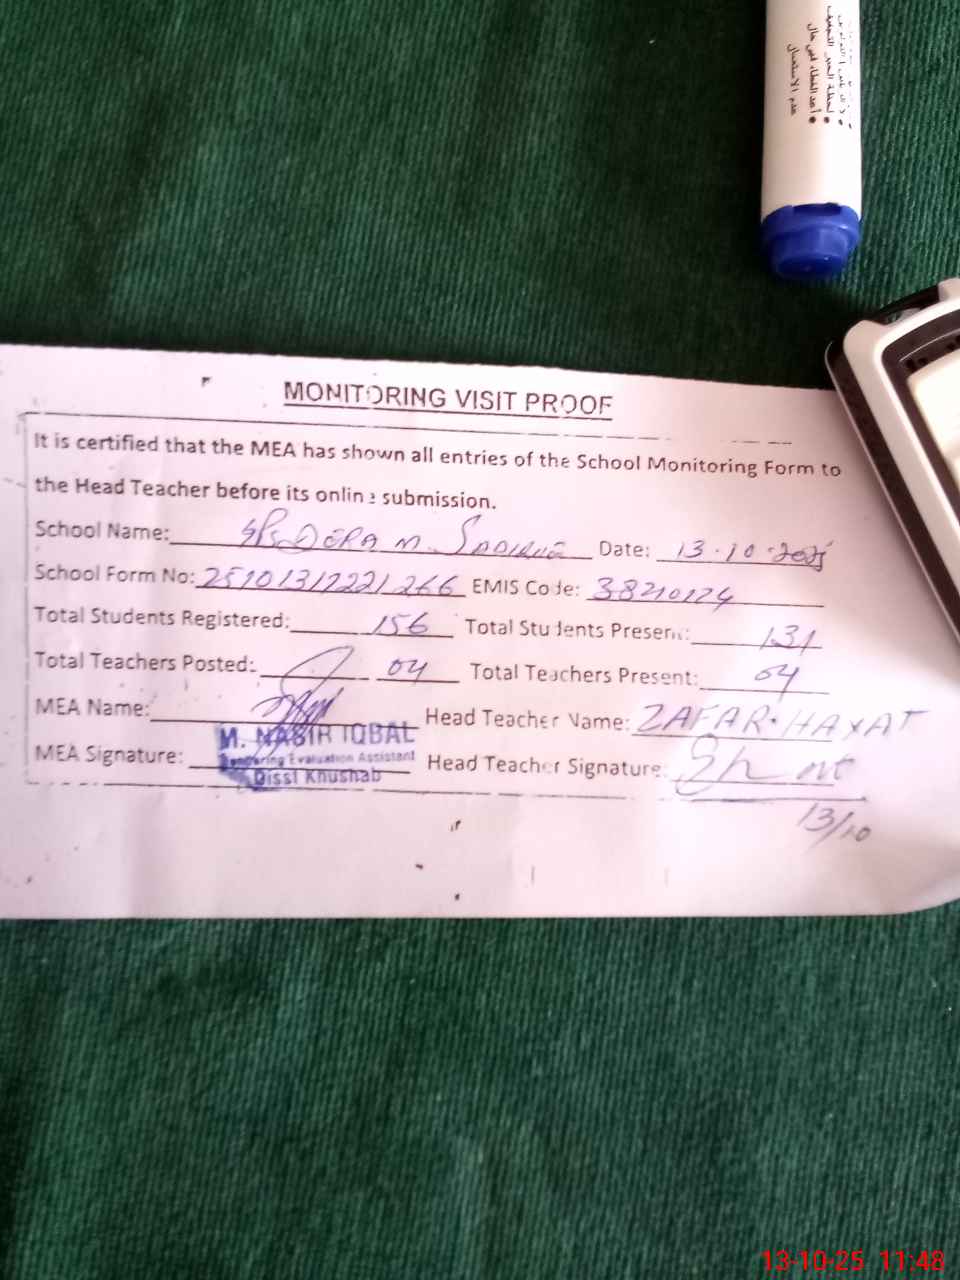 • أعد الغطاء في حال
عدم الاستعمال
MONITORING VISIT PROOF
It is certified that the MEA has shown all entries of the School Monitoring Form to
the Head Teacher before its online submission.
School Name: GPS DERA M. Date: 13.10.2025
School Form No: EMIS Code: 38210124
Total Students Registered: 156 Total Students Present: 131
Total Teachers Posted: 04 Total Teachers Present: 04
MEA Name: Head Teacher Name: ZAFAR HAYAT
M. NASIR IQBAL
MEA Signature: Evaluation Assistant Head Teacher Signature:
Disst Khushab
13/10
13-10-25 11:48